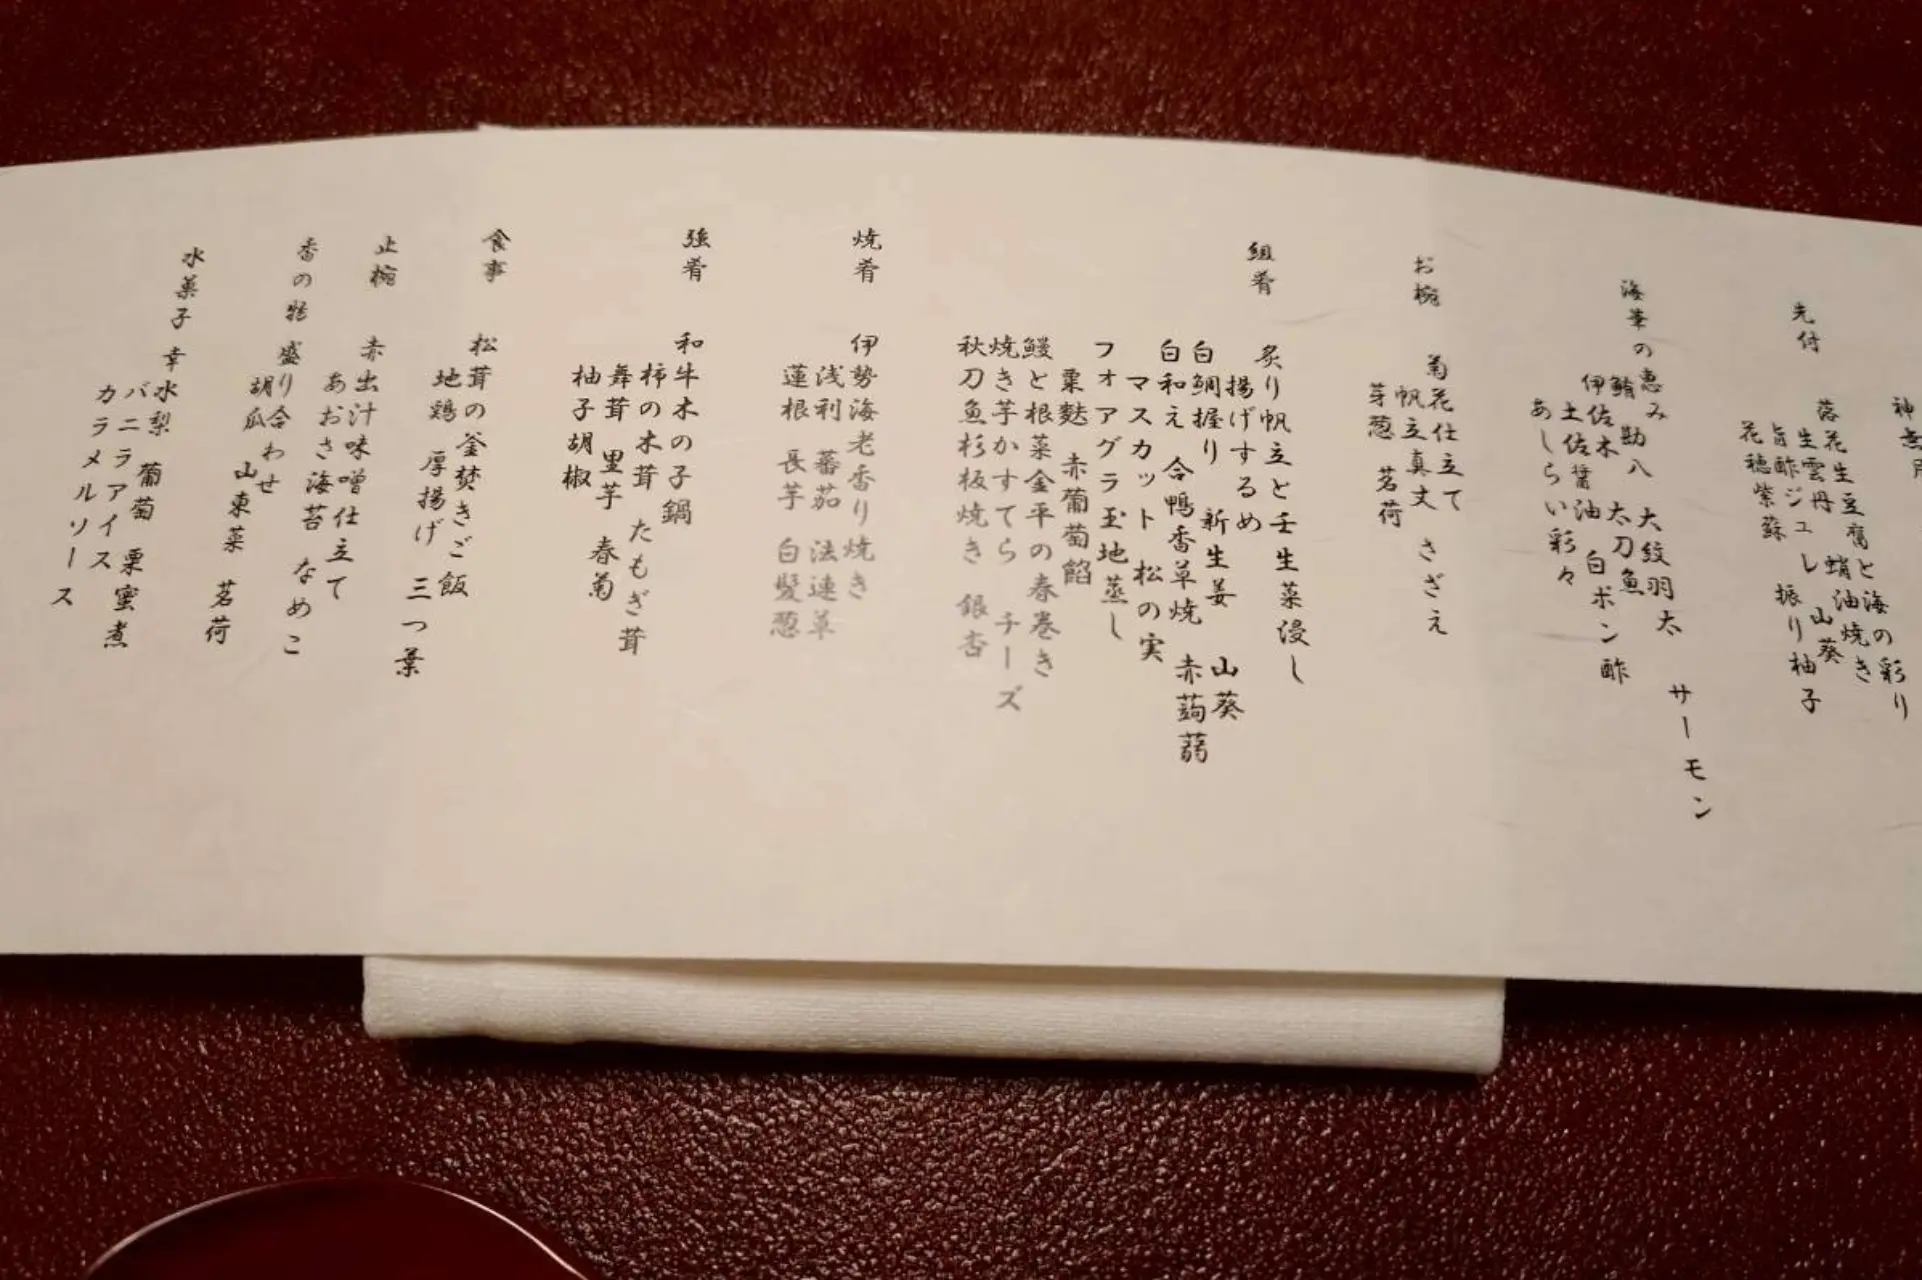 神無月
先付
落花生豆腐と海の彩り
生雲丹 蛸油焼き
旨酢ジュレ 山葵
花穂紫蘇 振り柚子
海華の恵み 大紋羽太 サーモン
鮪 勘八 太刀魚
伊佐木
土佐醤油 白ポン酢
あしらい彩々
お椀
菊花仕立て
帆立真丈 さざえ
芽葱 茗荷
組肴
炙り帆立と壬生菜浸し
揚げするめ
白鯛握り 新生姜 山葵
白和え 合鴨香草焼 赤蒟蒻
マスカット 松の実
フォアグラ玉地蒸し
粟麩 赤葡萄餡
鰻と根菜金平の春巻き
焼き芋かすてら チーズ
秋刀魚杉板焼き 銀杏
焼肴
伊勢海老香り焼き
浅利 蕃茄 法連草
蓮根 長芋 白髪葱
強肴
和牛木の子鍋
柿の木茸 たもぎ茸
舞茸 里芋 春菊
柚子胡椒
食事
松茸の釜焚きご飯
地鶏 厚揚げ 三つ葉
止椀
赤出汁味噌仕立て
あおさ海苔 なめこ
香の物
盛り合わせ
胡瓜 山東菜 茗荷
水菓子
幸水梨 葡萄 栗蜜煮
バニラアイス
カラメルソース